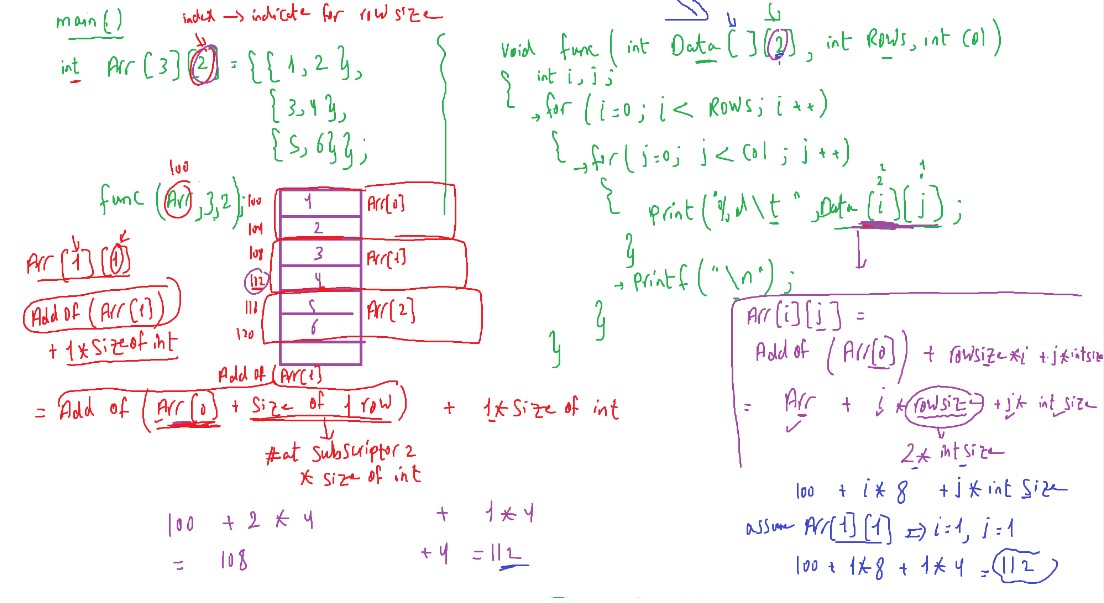 main()
index → indicate for row size
int Arr [3][2] = {{1,2},
{3,4},
{5,6}};
100
func (Arr,3,2);
100 1 Arr[0]
104 2
108 3 Arr[1]
112 4
5 Arr[2]
120 6
Arr[1][1]
Add of (Arr[1])
+ 1*sizeof int
Add of (Arr[1]
= Add of (Arr[0] + Size of 1 row) + 1*Size of int
#at subscriptor 2
* size of int
100 + 2*4 + 1*4
= 108 +4 = 112
void func (int Data[][2], int Rows, int Col)
{ int i,j;
→for (i=0; i< Rows; i++)
{ →for(j=0; j<Col; j++)
2 1
2
{ print("%d\t", Data[i][j]);
}
→printf("\n");
}
}
Arr[i][j] =
Add of (Arr[0]) + rowsize*i + j*intsize
= Arr + i*(rowsiz) + j* int size
2* intsize
100 + i*8 + j*int Size
assum Arr[1][1] ⇒ i=1, j=1
100 + 1*8 + 1*4 = 112